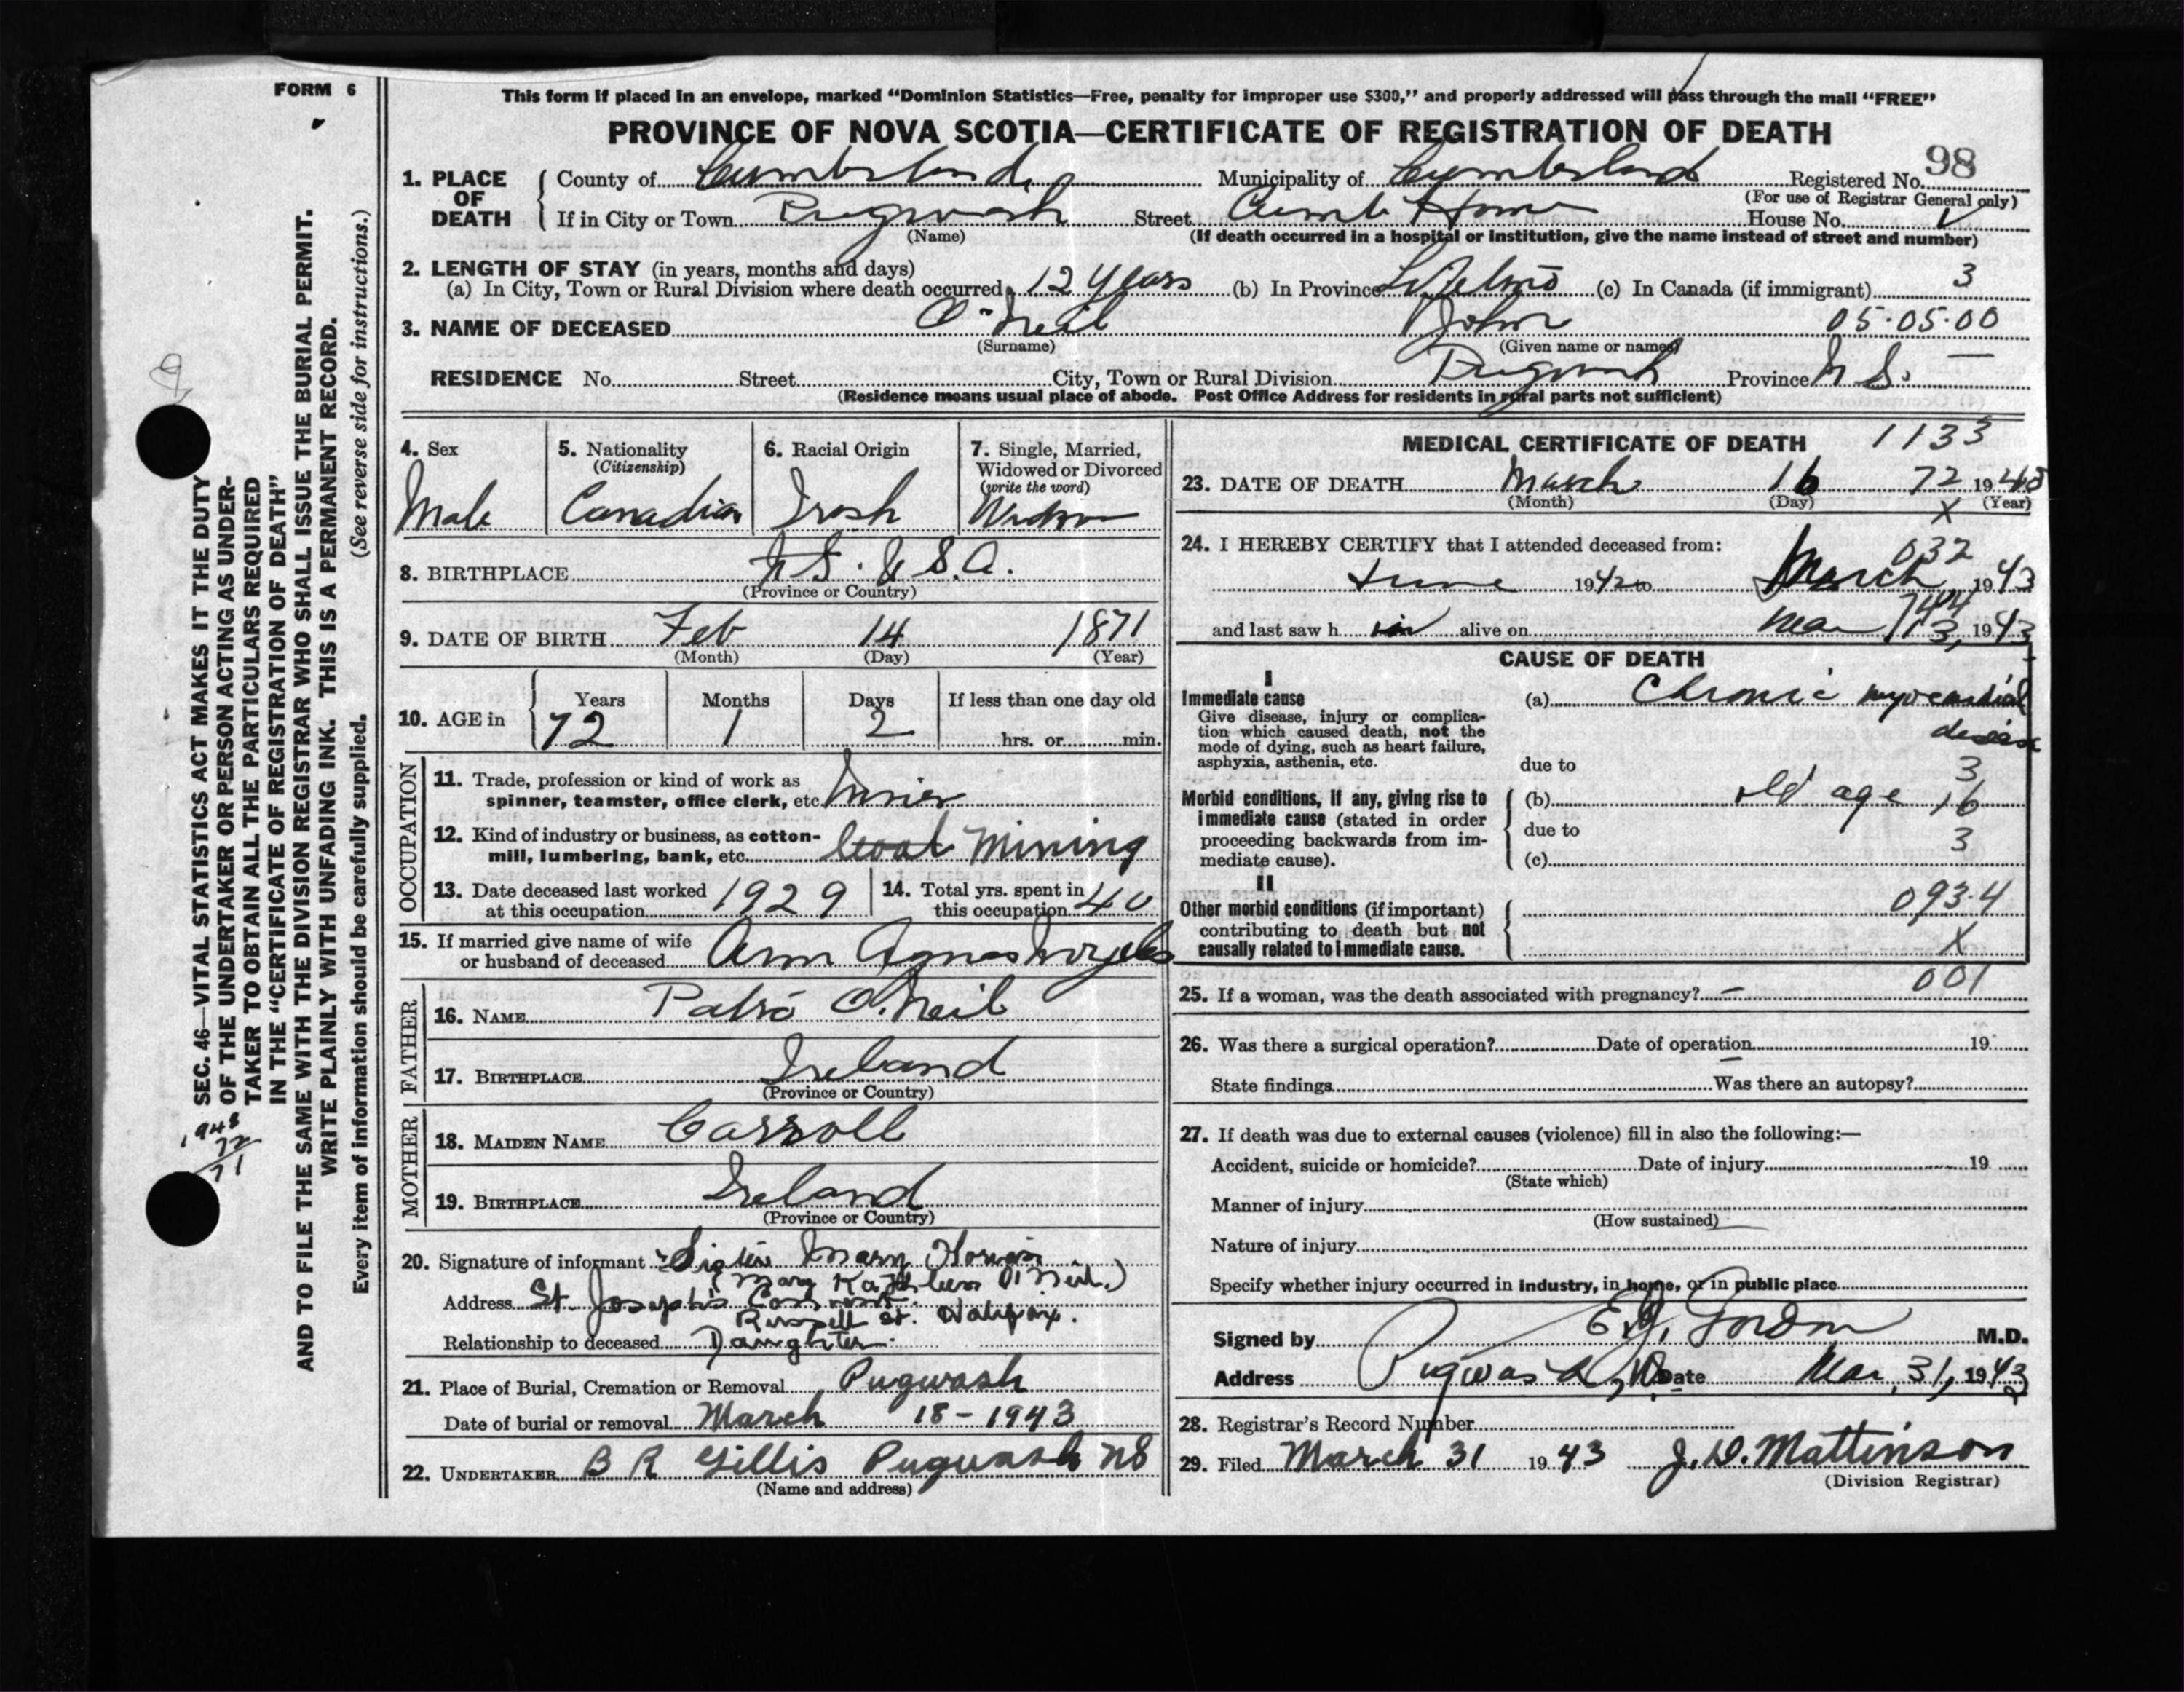 FORM 6
This form if placed in an envelope, marked "Dominion Statistics—Free, penalty for improper use $300," and properly addressed will pass through the mail "FREE"
PROVINCE OF NOVA SCOTIA—CERTIFICATE OF REGISTRATION OF DEATH
98
1. PLACE OF DEATH
County of Cumberland Municipality of Cumberland Registered No.
(For use of Registrar General only)
If in City or Town Pugwash Street Cumb Home House No.
(Name) (If death occurred in a hospital or institution, give the name instead of street and number)
2. LENGTH OF STAY (in years, months and days)
(a) In City, Town or Rural Division where death occurred 12 years (b) In Province Lifetime (c) In Canada (if immigrant) 3
3. NAME OF DECEASED O'Neil John 05·05·00
(Surname) (Given name or names)
RESIDENCE No. Street City, Town or Rural Division Pugwash Province N S.
(Residence means usual place of abode. Post Office Address for residents in rural parts not sufficient)
4. Sex Male
5. Nationality (Citizenship) Canadian
6. Racial Origin Irish
7. Single, Married, Widowed or Divorced (write the word)
8. BIRTHPLACE U.S.A.
(Province or Country)
9. DATE OF BIRTH Feb 14 1871
(Month) (Day) (Year)
10. AGE in Years 72 Months 1 Days 2 If less than one day old
hrs. or min.
OCCUPATION
11. Trade, profession or kind of work as spinner, teamster, office clerk, etc. Miner
12. Kind of industry or business, as cotton-mill, lumbering, bank, etc. Coal Mining
13. Date deceased last worked at this occupation 1929
14. Total yrs. spent in this occupation 40
15. If married give name of wife or husband of deceased Ann Agnes
FATHER
16. NAME O'Neil
17. BIRTHPLACE Ireland
(Province or Country)
MOTHER
18. MAIDEN NAME Carroll
19. BIRTHPLACE Ireland
(Province or Country)
20. Signature of informant Sister Mary
(Mary Kathleen O'Neil.)
Address St. Joseph's Convent.
Russell St. Halifax.
Relationship to deceased Daughter
21. Place of Burial, Cremation or Removal Pugwash
Date of burial or removal March 18 - 1943
22. UNDERTAKER B R Gillis Pugwash NS
(Name and address)
MEDICAL CERTIFICATE OF DEATH 1133
23. DATE OF DEATH March 16 72 1943
(Month) (Day) (Year)
X
24. I HEREBY CERTIFY that I attended deceased from: 032
June 1942 to March 1943
744
and last saw h im alive on Mar 13, 1943
CAUSE OF DEATH
I
Immediate cause
Give disease, injury or complication which caused death, not the mode of dying, such as heart failure, asphyxia, asthenia, etc.
(a) Chronic myocardial disease
due to 3
Morbid conditions, if any, giving rise to immediate cause (stated in order proceeding backwards from immediate cause).
(b) old age 16
due to 3
(c)
II
Other morbid conditions (if important) contributing to death but not causally related to immediate cause.
093·4
X
25. If a woman, was the death associated with pregnancy? – 001
26. Was there a surgical operation? Date of operation 19
State findings Was there an autopsy?
27. If death was due to external causes (violence) fill in also the following:—
Accident, suicide or homicide? Date of injury 19
(State which)
Manner of injury
(How sustained)
Nature of injury
Specify whether injury occurred in industry, in home, or in public place
Signed by Gordon M.D.
Address Pugwash, NS. Date Mar. 31, 1943
28. Registrar's Record Number
29. Filed March 31 1943 J. D. Mattinson
(Division Registrar)
SEC. 46—VITAL STATISTICS ACT MAKES IT THE DUTY
OF THE UNDERTAKER OR PERSON ACTING AS UNDER-
TAKER TO OBTAIN ALL THE PARTICULARS REQUIRED
IN THE "CERTIFICATE OF REGISTRATION OF DEATH"
AND TO FILE THE SAME WITH THE DIVISION REGISTRAR WHO SHALL ISSUE THE BURIAL PERMIT.
WRITE PLAINLY WITH UNFADING INK. THIS IS A PERMANENT RECORD.
Every item of information should be carefully supplied. (See reverse side for instructions.)
1943
72
71